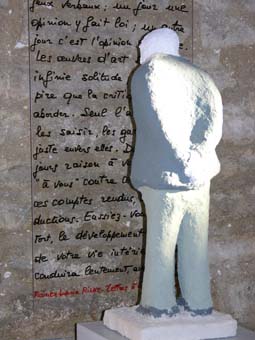 jeux verbaux ; un jour une
opinion y fait loi ; un autre
jour c'est l'opinion
les œuvres d'art
infinie solitude
pire que la criti
aborder. Seul l'a
les saisir, les ga
juste envers elles. D
jours raison à v
"à vous" contre
ces comptes rendus,
ductions. Eussiez-vou
tort, le développement
de votre vie intéri
conduira lentement, a
Rilke Lettres à